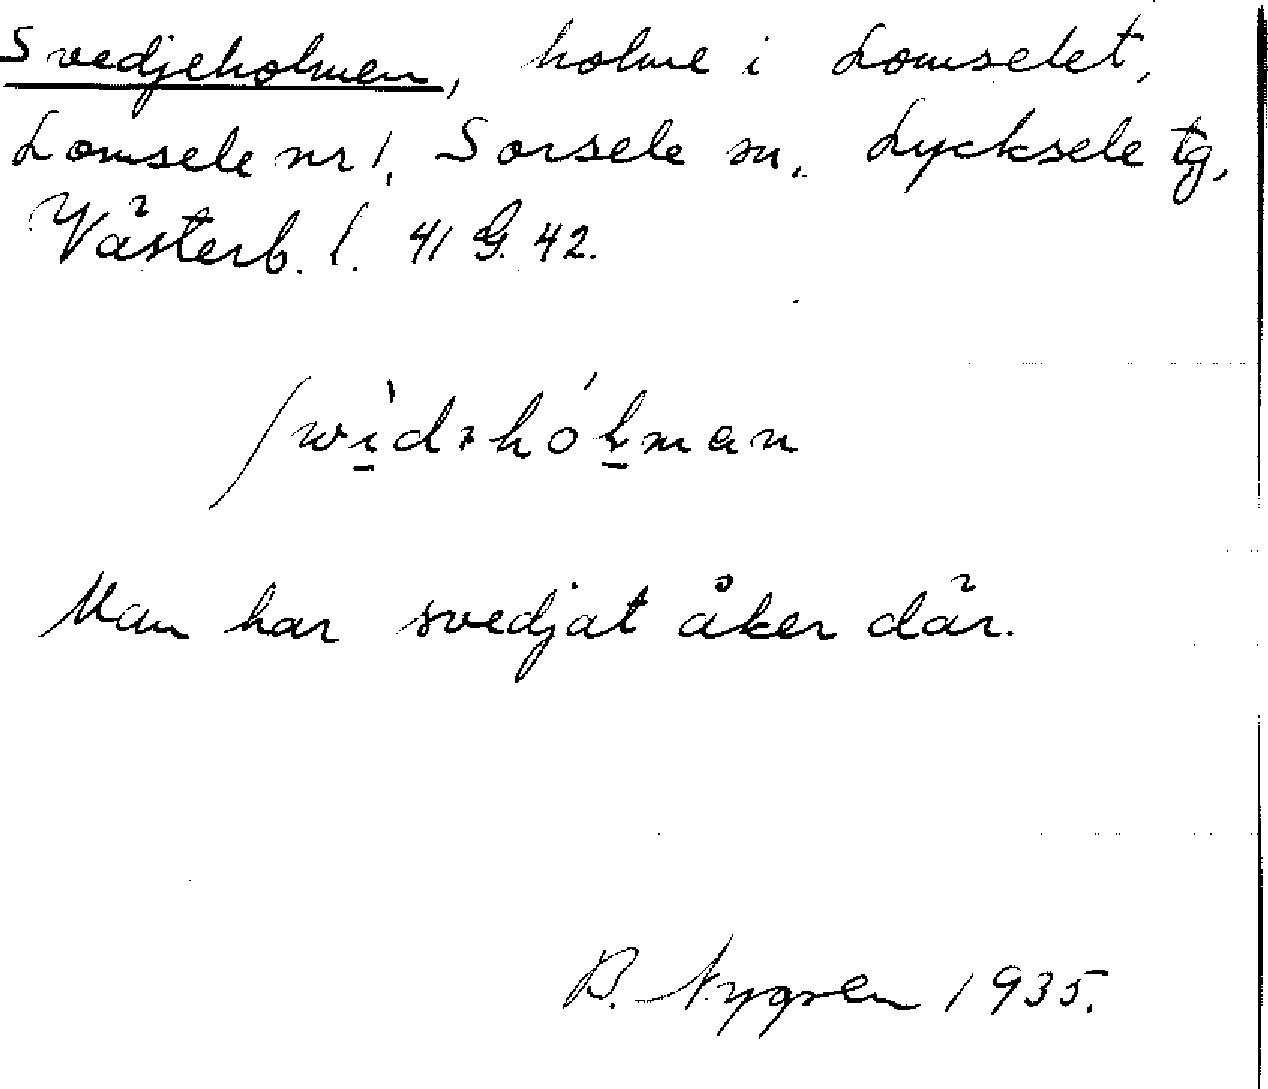 Svedjeholmen, holme i Lomselet,
Lomsele nr 1, Sorsele sn, Lycksele tg,
Västerb. l. 41 G. 42.
Man har svedjat åker där.
B. Nygren 1935.